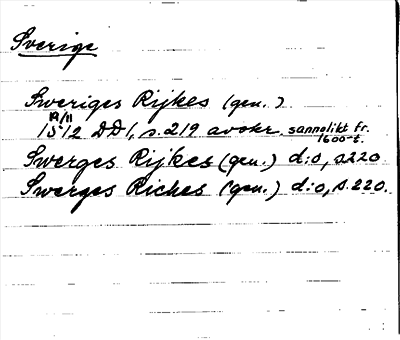 Sverige
Sweriges Rijkes (gen.)
19/11
1512 DD1, s.219 avskr. sannolikt fr.
1600-t.
Swerges Rijkes (gen.) d:o, s.220
Swerges Riches (gen.) d:o, s.220.